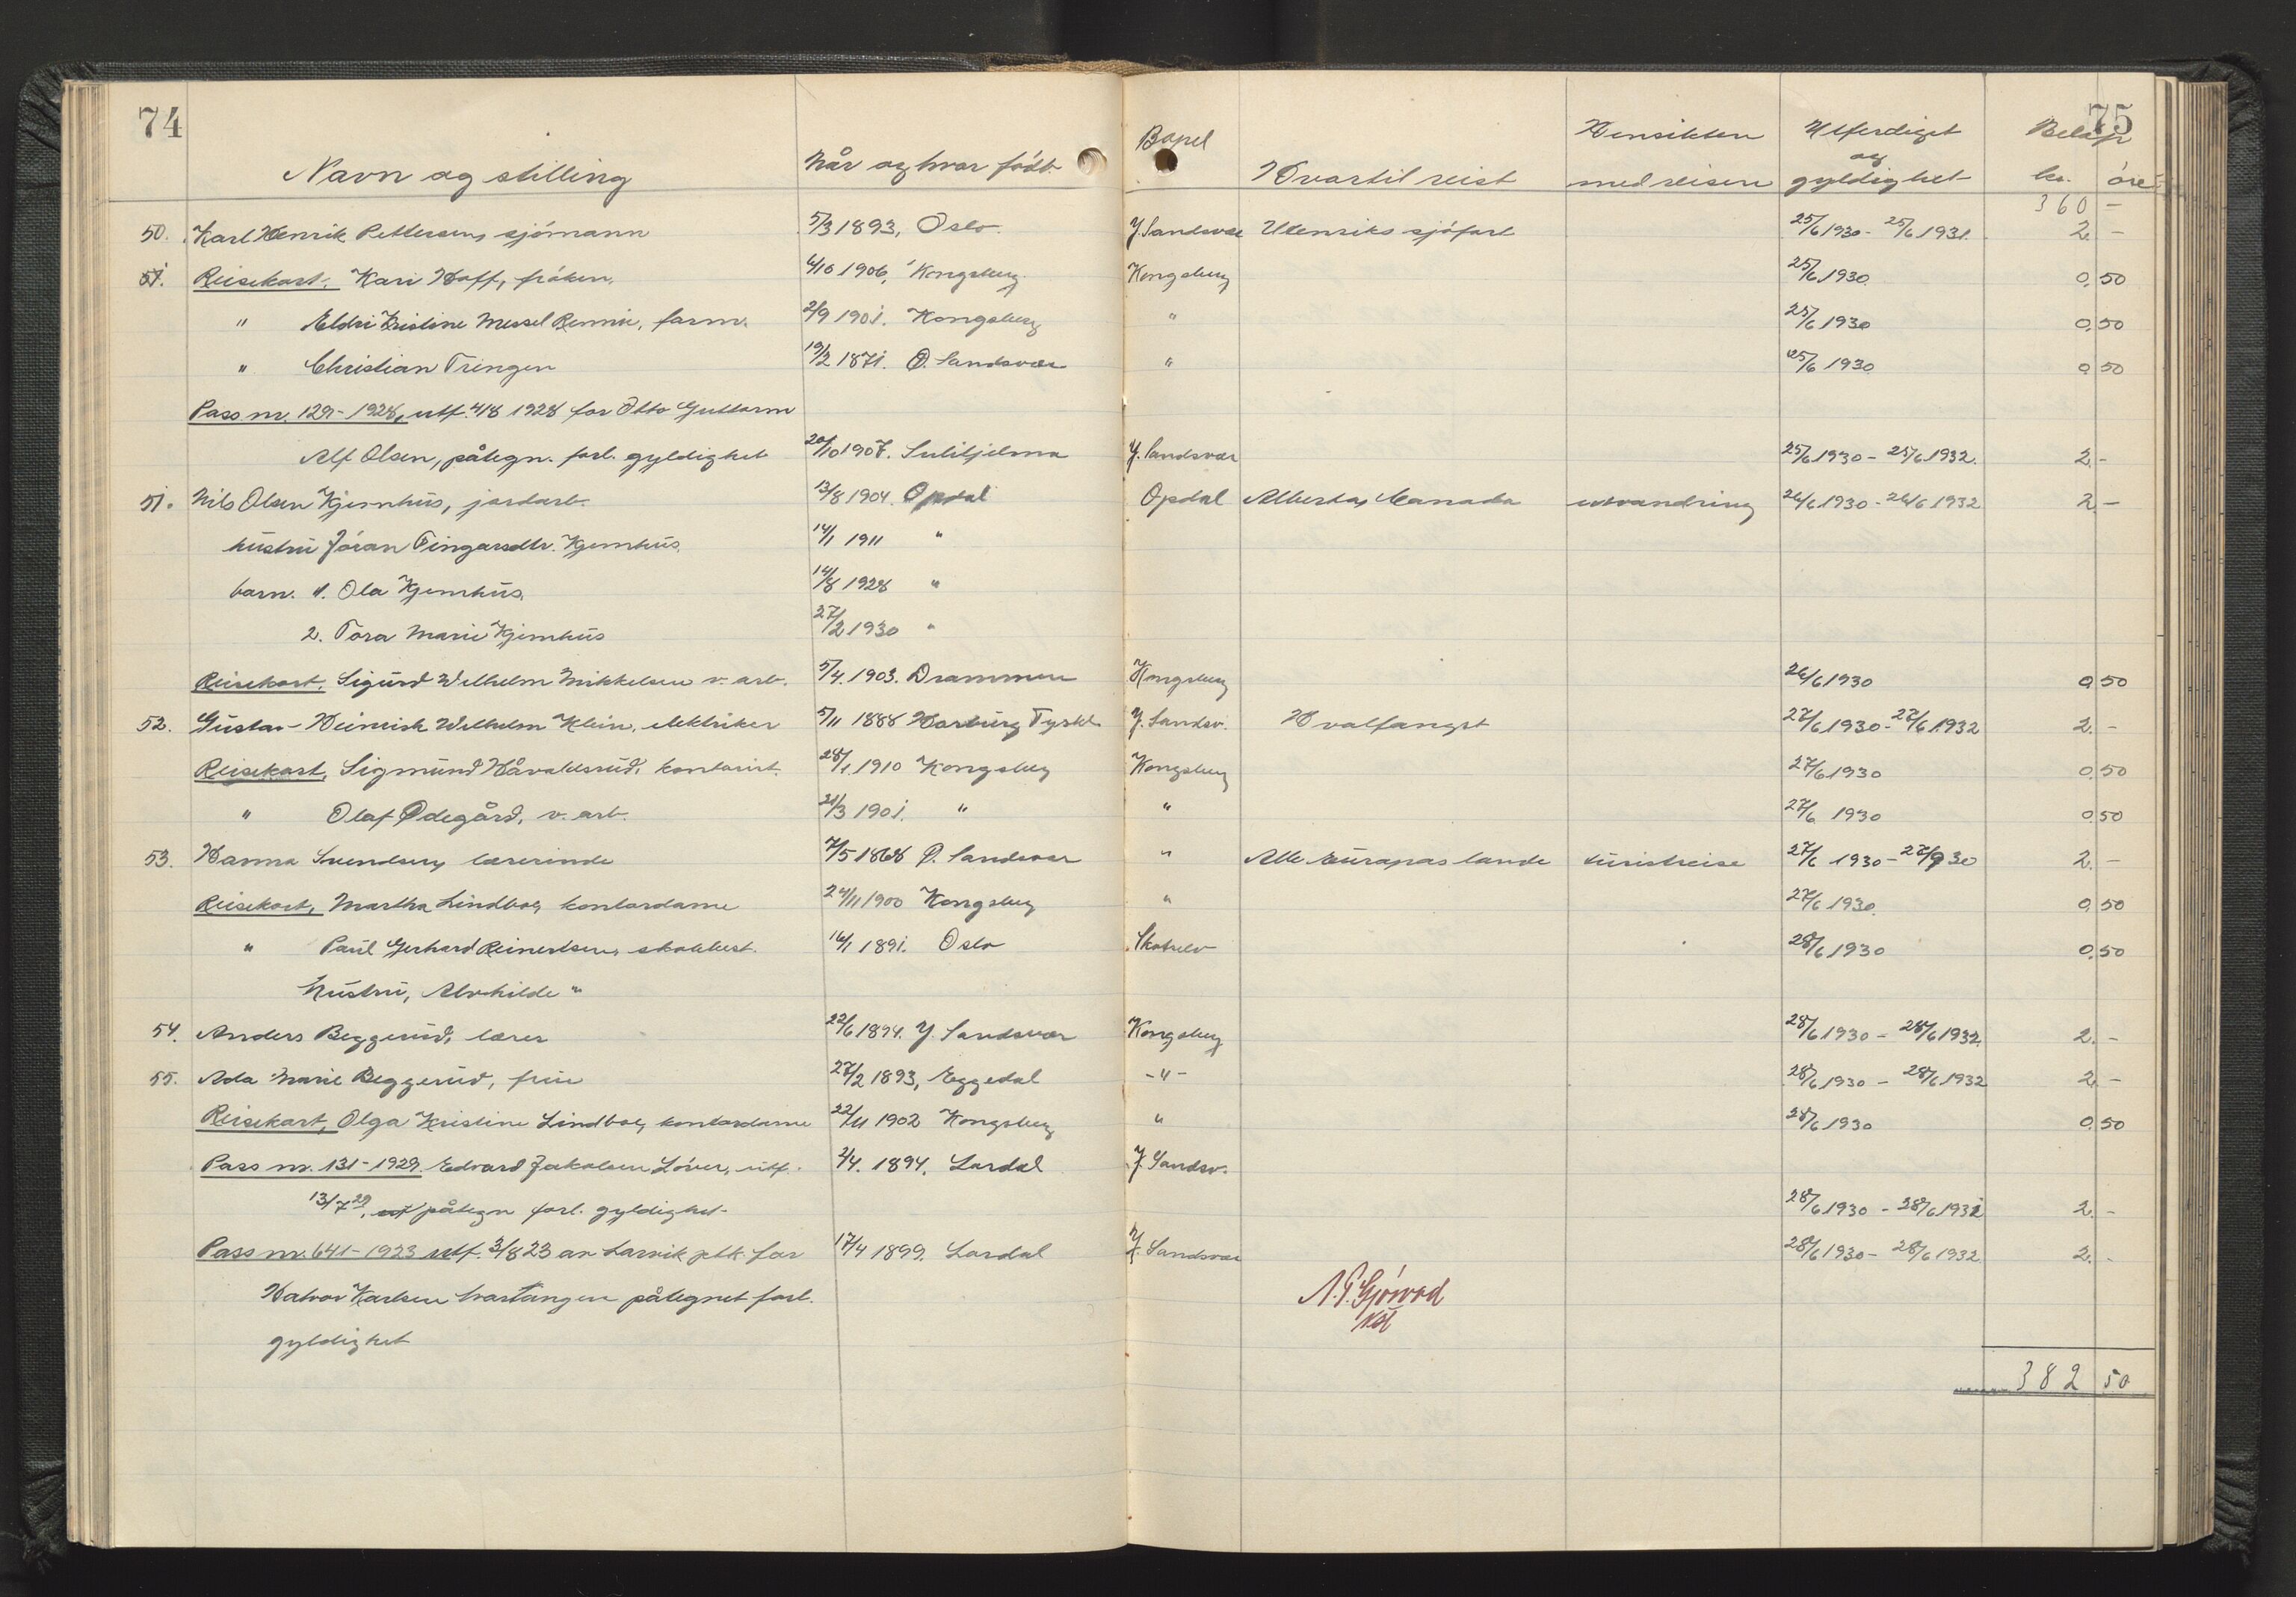 74
75
Navn og stilling Når og hvor født Bopel Hvortil reist Hensikten med reisen Utferdiget og gyldighet Beløp kr. øre
360 –
50. Karl Henrik Pettersen, sjømann 5/3 1893, Oslo. Y. Sandsvær Utenriks sjøfart 25/6 1930 - 25/6 1931. 2. –
51. Reisekort, Kari Hoff, frøken. 4/10 1906, Kongsberg. Kongsberg 25/6 1930. 0,50
" Eldri Kristine Messel, farm. 2/9 1901. Kongsberg " 25/6 1930 0,50
" Christian Tringen 19/2 1871. Ø. Sandsvær " 25/6 1930 0,50
Pass nr. 129 - 1928, utf. 4/8 1928 for Otto Guttorm
Alf Olsen, påtegn. forl. gyldighet 20/10 1907. Sulitjelma Y. Sandsvær 25/6 1930 - 25/6 1932. 2. -
51. Nils Olsen Kjemhus, jordarb. 13/8 1904. Opdal Opdal Alberta, Canada utvandring 26/6 1930 - 26/6 1932 2. –
hustru Jøran Kjemhus. 14/1 1911 "
barn. 1. Ola Kjemhus. 14/8 1928 "
2. Tora Marie Kjemhus 27/2 1930 "
Reisekort, Sigurd Wilhelm Mikkelsen v. arb. 5/4. 1903. Drammen Kongsberg 26/6 1930 0,50
52. Gustav Heinrich Wilhelm Klein, elektriker 5/11 1888 Harburg Tyskl. Y. Sandsv. Hvalfangst 27/6 1930 - 27/6 1932 2. –
Reisekort, Sigmund Håvaldsrud, kontorist. 28/1 1910 Kongsberg Kongsberg 27/6 1930 0.50
" Olaf Ødegård, v. arb. 21/3 1901. " " 27/6 1930 0.50
53. Hanna Svendsen, lærerinde 7/5 1868 Ø. Sandsvær " Alle Europas lande turistreise 27/6 1930 - 27/9 30 2. –
Reisekort, Martha Lindboe, kontordame 24/11 1900 Kongsberg " 27/6 1930. 0,50
" Paul Gerhard Reinertsen, skolebest. 16/1 1891. Oslo Skotselv 28/6 1930 0,50
hustru, Alvhilde "
54. Anders Beggerud, lærer 22/6 1894. Y. Sandsvær Kongsberg 28/6 1930 - 28/6 1932. 2. –
55. Ada Marie Beggerud, frue 27/2 1893, Eggedal -"- 28/6 1930 - 28/6 1932 2. –
Reisekort, Olga Kristine Lindboe, kontordame 22/11 1902 Kongsberg " 28/6 1930 0.50
Pass nr. 131 - 1929. Edvard Jakobsen Løver, utf. 2/4. 1894. Lardal Y. Sandsv.
13/7 29, påtegn forl. gyldighet. 28/6 1930 - 28/6 1932 2. –
Pass nr. 641 - 1923 utf. 3/8 23 av Larvik pltk. for 17/4 1899. Lardal Y. Sandsvær 28/6 1930 - 28/6 1932. 2. -
Halvor Karlsen Svartangen påtegnet forl.
gyldighet
382 50